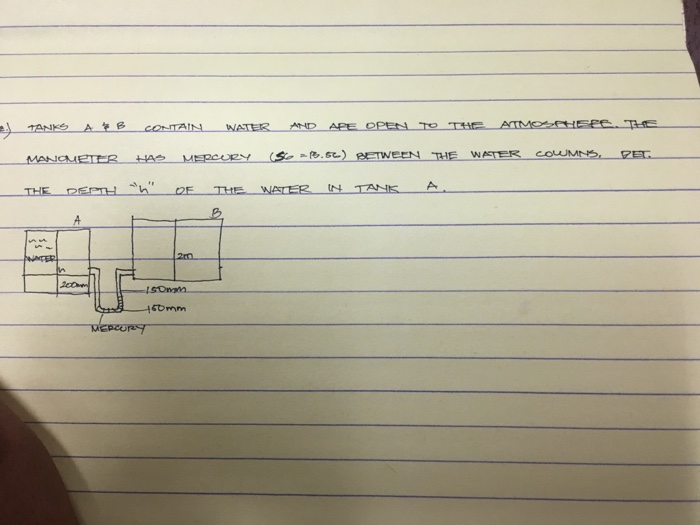 TANKS A & B CONTAIN WATER AND ARE OPEN TO THE ATMOSPHERE. THE
MANOMETER HAS MERCURY (SG = 13.56) BETWEEN THE WATER COLUMNS. DET.
THE DEPTH "h" OF THE WATER IN TANK A.
A
B
WATER
2m
h
200mm
150mm
150mm
MERCURY